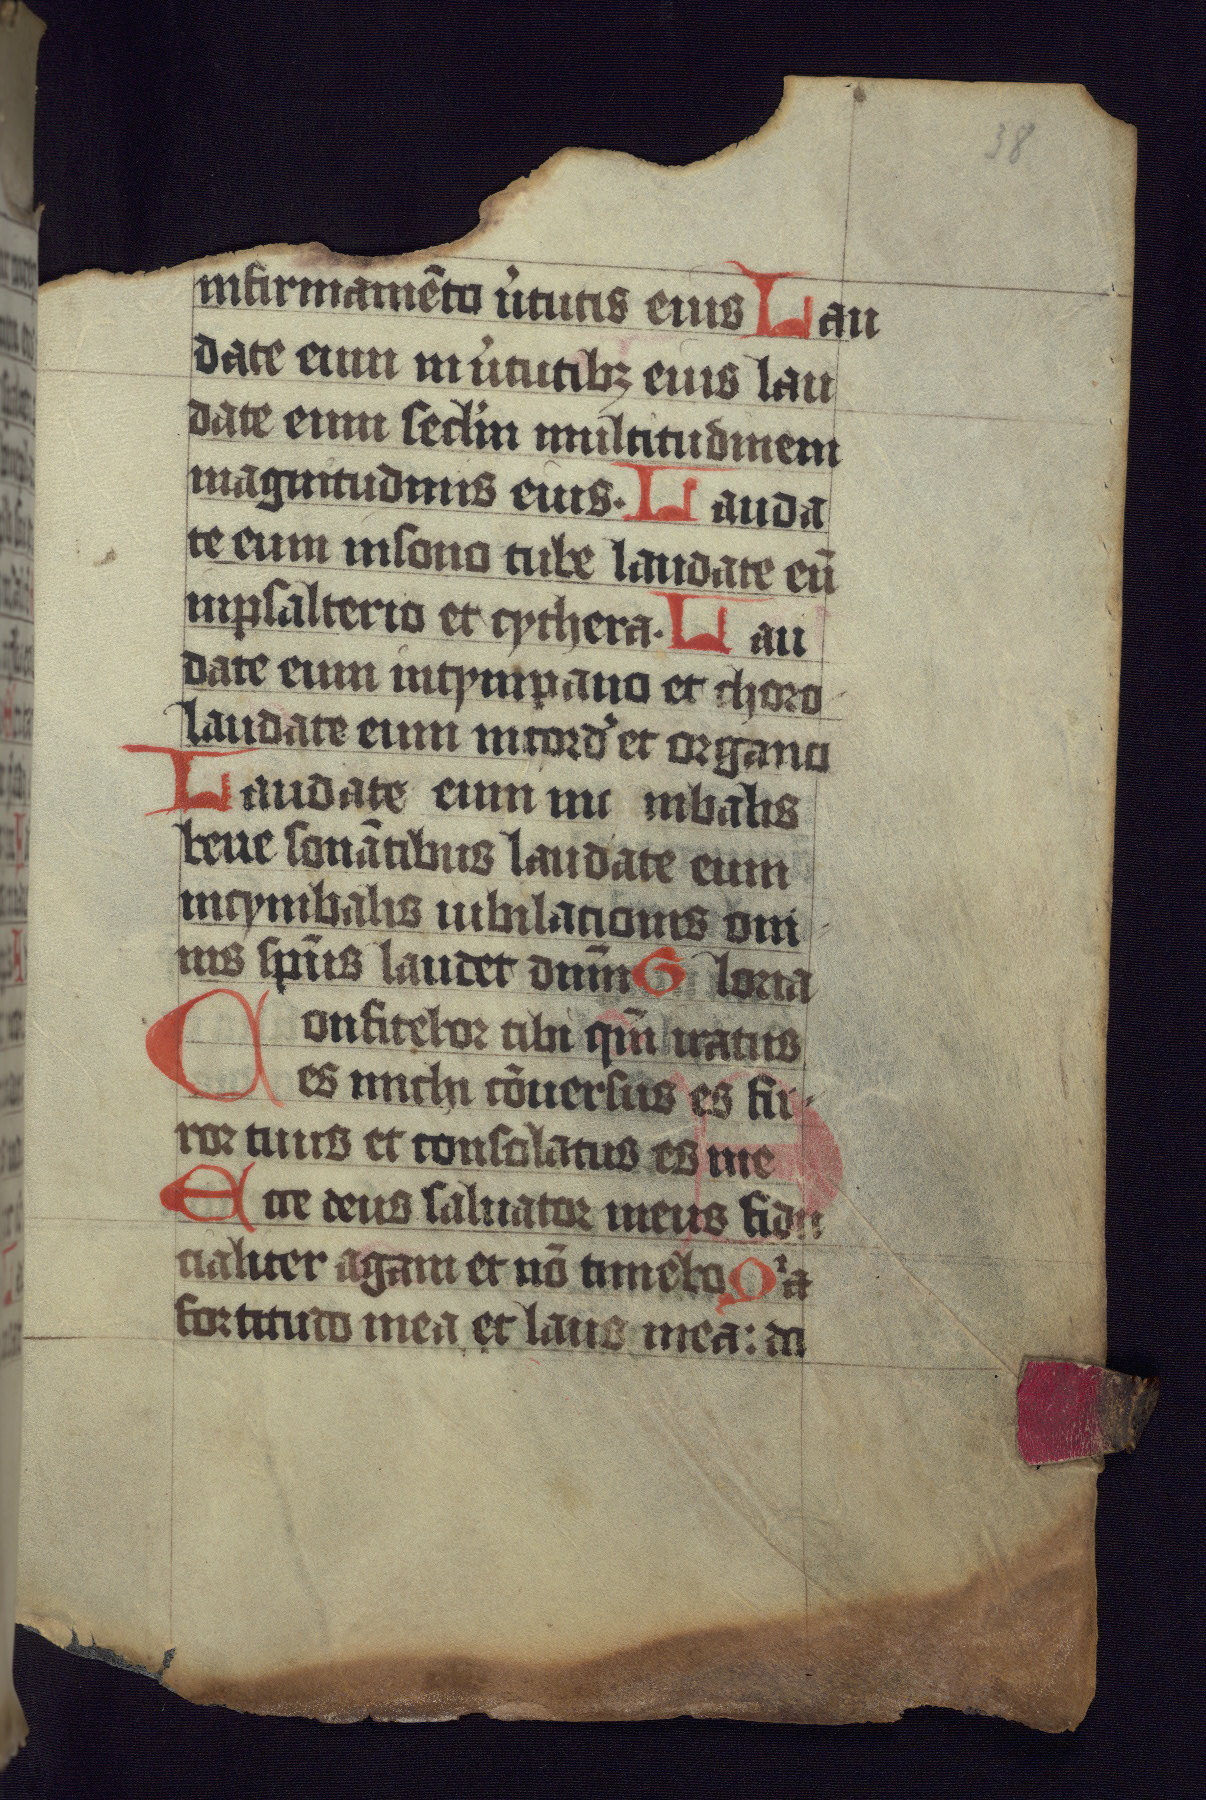 38
infirmamēto v̾tutis eius Lau
date eum in v̾tutibꝫ eius lau
date eum secd̾m multitudinem
magnitudinis eius. Lauda
te eum insono tube laudate eū
inpsalterio et cythera. Lau
date eum intympano et choro
laudate eum incord̾ et organo
Laudate eum in c mbalis
bene sonātibus laudate eum
incymbalis iubilacionis om
nis sp̄us laudet dn̄m Gloria
Confitebor tibi qm̄ iratus
es michi cōuersus es fu
ror tuus et consolatus es me
Ecce deus saluator meus fidu
cialiter agam et nō timebo Qͥa
fortitudo mea et laus mea: do